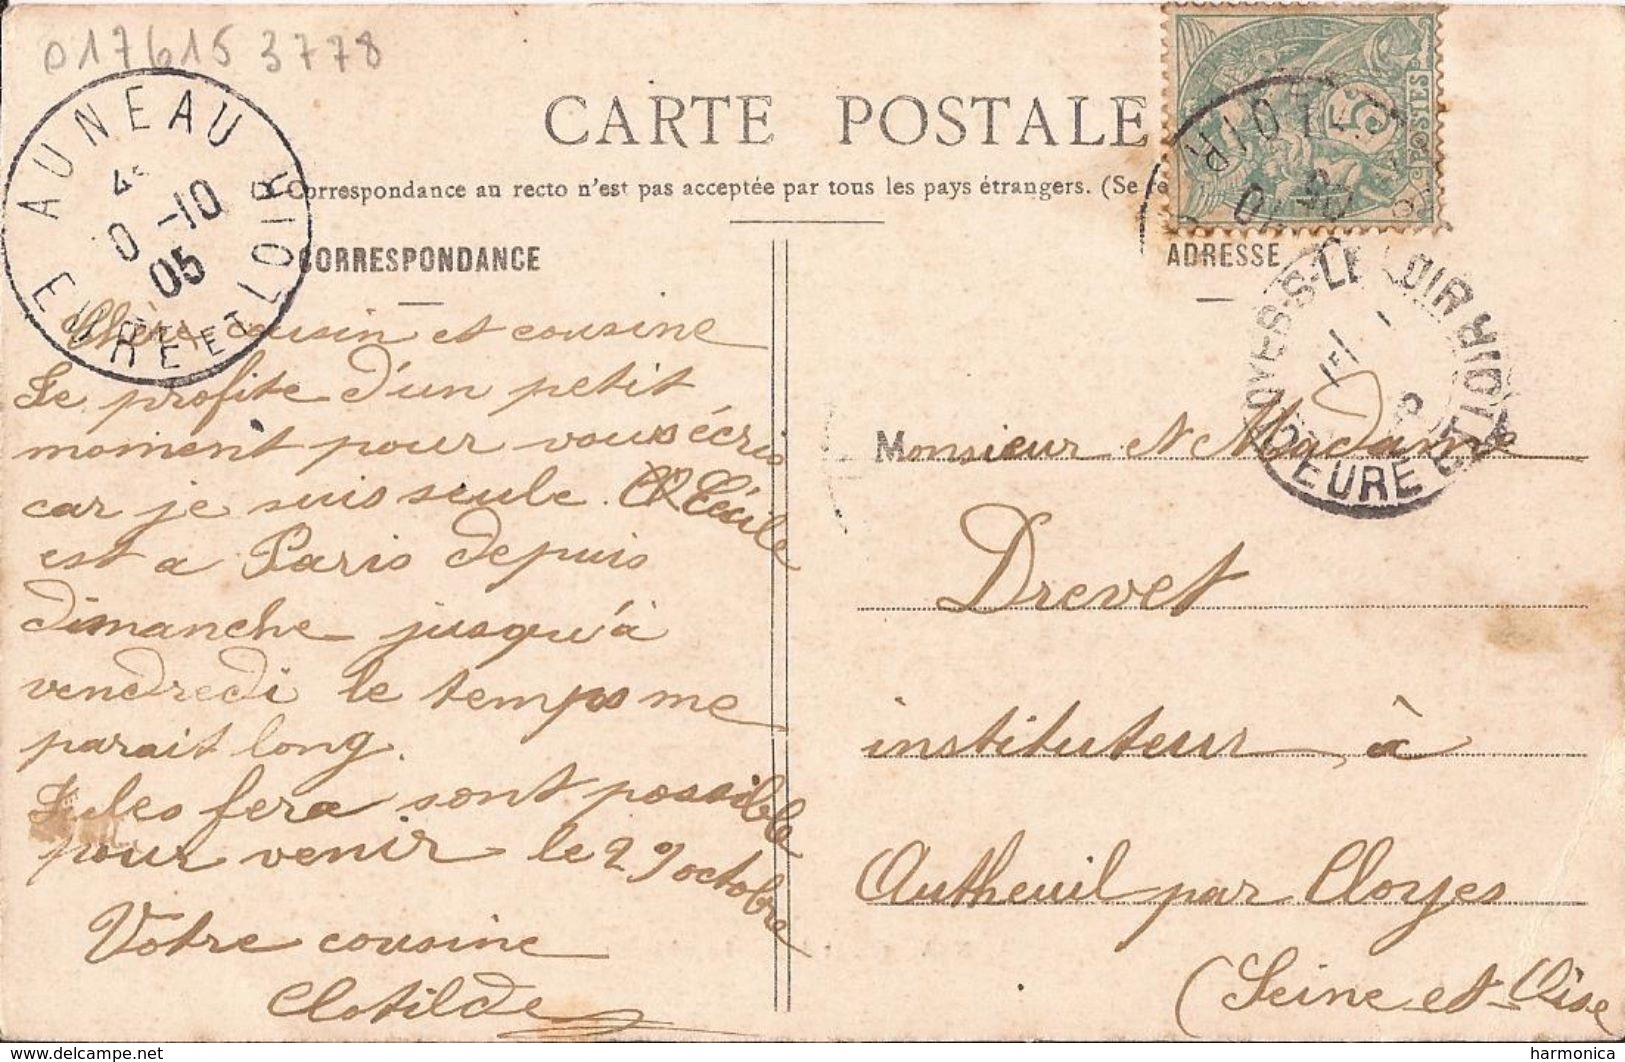 0176153778
CARTE POSTALE
Correspondance au recto n'est pas acceptée par tous les pays étrangers. (Se re
CORRESPONDANCE
AUNEAU
EURE ET LOIR
4e
0 -10
05
Chère cousin et cousine
Je profite d'un petit
moment pour vous écris
car je suis seule. Cécile
est a Paris depuis
dimanche jusqu'à
vendredi le temps me
parait long.
Jules fera sont possible
pour venir le 29 octobre
Votre cousine
Clotilde
5
POSTES
LOIR
ADRESSE
OYES-S-LE LOIR
EURE ET LOIR
Monsieur et Madame
Drevet
instituteur à
Autheuil par Cloyes
(Seine et Oise
delcampe.net
harmonica